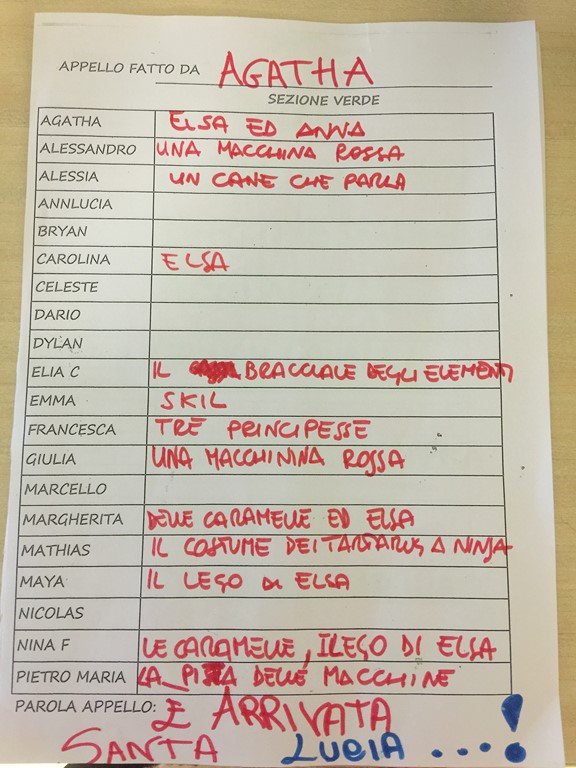 APPELLO FATTO DA AGATHA
SEZIONE VERDE
AGATHA ELSA ED ANNA
ALESSANDRO UNA MACCHINA ROSSA
ALESSIA UN CANE CHE PARLA
ANNLUCIA
BRYAN
CAROLINA ELSA
CELESTE
DARIO
DYLAN
ELIA C IL BRACCIALE DEGLI ELEMENTI
EMMA SKIL
FRANCESCA TRE PRINCIPESSE
GIULIA UNA MACCHININA ROSSA
MARCELLO
MARGHERITA DELLE CARAMELLE ED ELSA
MATHIAS IL COSTUME DEI TARTARUGA NINJA
MAYA IL LEGO DI ELSA
NICOLAS
NINA F LE CARAMELLE, ILEGO DI ELSA
PIETRO MARIA LA PISTA DELLE MACCHINE
PAROLA APPELLO: E ARRIVATA
SANTA LUCIA ...!